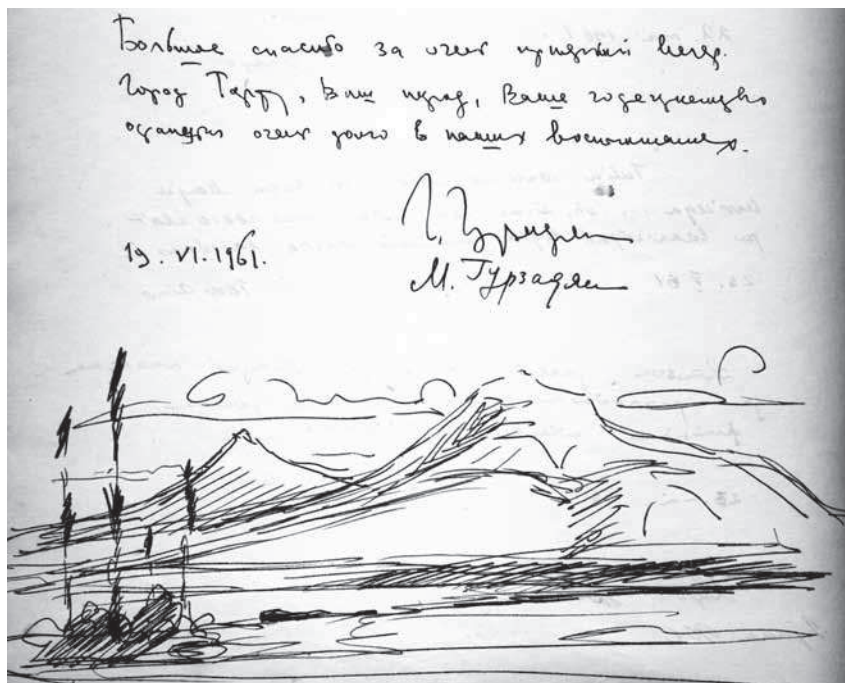 Большое спасибо за очень приятный вечер.
Город Тарту, Ваш народ, Ваше гостеприимство
останутся очень долго в наших воспоминаниях.
Г. Гурзадян
19. VI. 1961.
М. Гурзадян